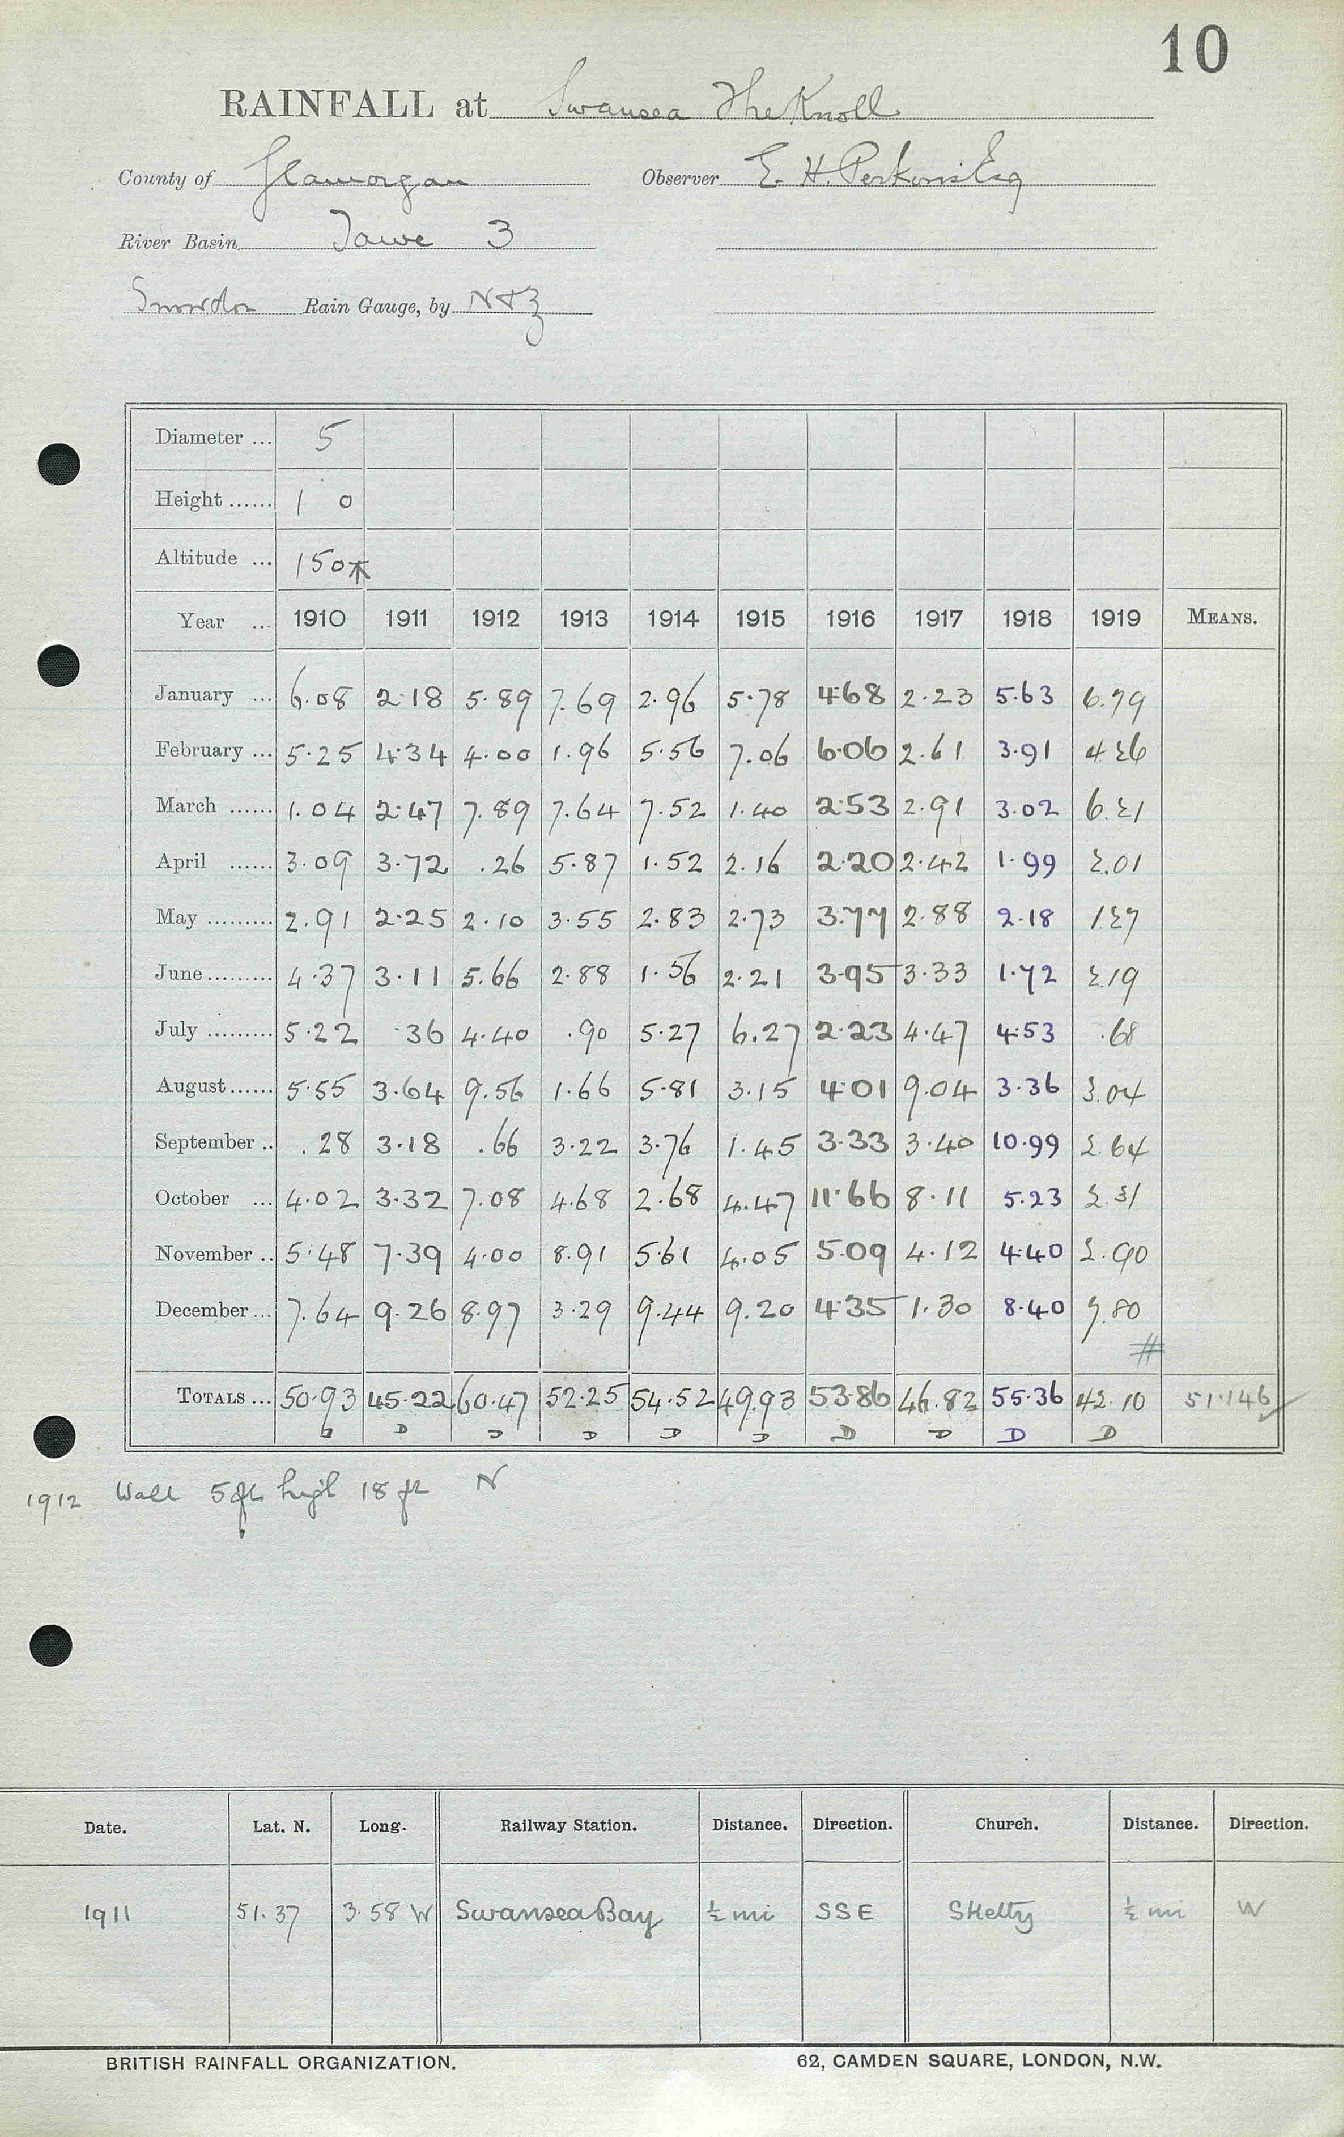 10
RAINFALL at Swansea The Knoll
County of Glamorgan Observer E. H. Perkins Esq
River Basin Tawe 3
Snowdon Rain Gauge, by N&Z
Diameter ... 5
Height ...... 1 0
Altitude ... 150*
Year ... 1910 1911 1912 1913 1914 1915 1916 1917 1918 1919 MEANS.
January ... 6.08 2.18 5.89 7.69 2.96 5.78 4.68 2.23 5.63 6.79
February ... 5.25 4.34 4.00 1.96 5.56 7.06 6.06 2.61 3.91 4.26
March ...... 1.04 2.47 7.89 7.64 7.52 1.40 2.53 2.91 3.02 6.21
April ...... 3.09 3.72 .26 5.87 1.52 2.16 2.20 2.42 1.99 2.01
May ......... 2.91 2.25 2.10 3.55 2.83 2.73 3.77 2.88 2.18 1.27
June ......... 4.37 3.11 5.66 2.88 1.56 2.21 3.95 3.33 1.72 2.19
July ......... 5.22 .36 4.40 .90 5.27 6.27 2.23 4.47 4.53 .68
August ...... 5.55 3.64 9.56 1.66 5.81 3.15 4.01 9.04 3.36 3.04
September .. .28 3.18 .66 3.22 3.76 1.45 3.33 3.40 10.99 2.64
October ... 4.02 3.32 7.08 4.68 2.68 4.47 11.66 8.11 5.23 2.31
November .. 5.48 7.39 4.00 8.91 5.61 4.05 5.09 4.12 4.40 2.90
December ... 7.64 9.26 8.97 3.29 9.44 9.20 4.35 1.30 8.40 7.80
#
TOTALS ... 50.93 45.22 60.47 52.25 54.52 49.93 53.86 46.82 55.36 42.10 51.146
D D D D D D D D D D
1912 Wall 5 ft high 18 ft N
Date. Lat. N. Long. Railway Station. Distance. Direction. Church. Distance. Direction.
1911 51.37 3.58 W Swansea Bay ½ mi SSE Sketty ½ mi W
BRITISH RAINFALL ORGANIZATION. 62, CAMDEN SQUARE, LONDON, N.W.